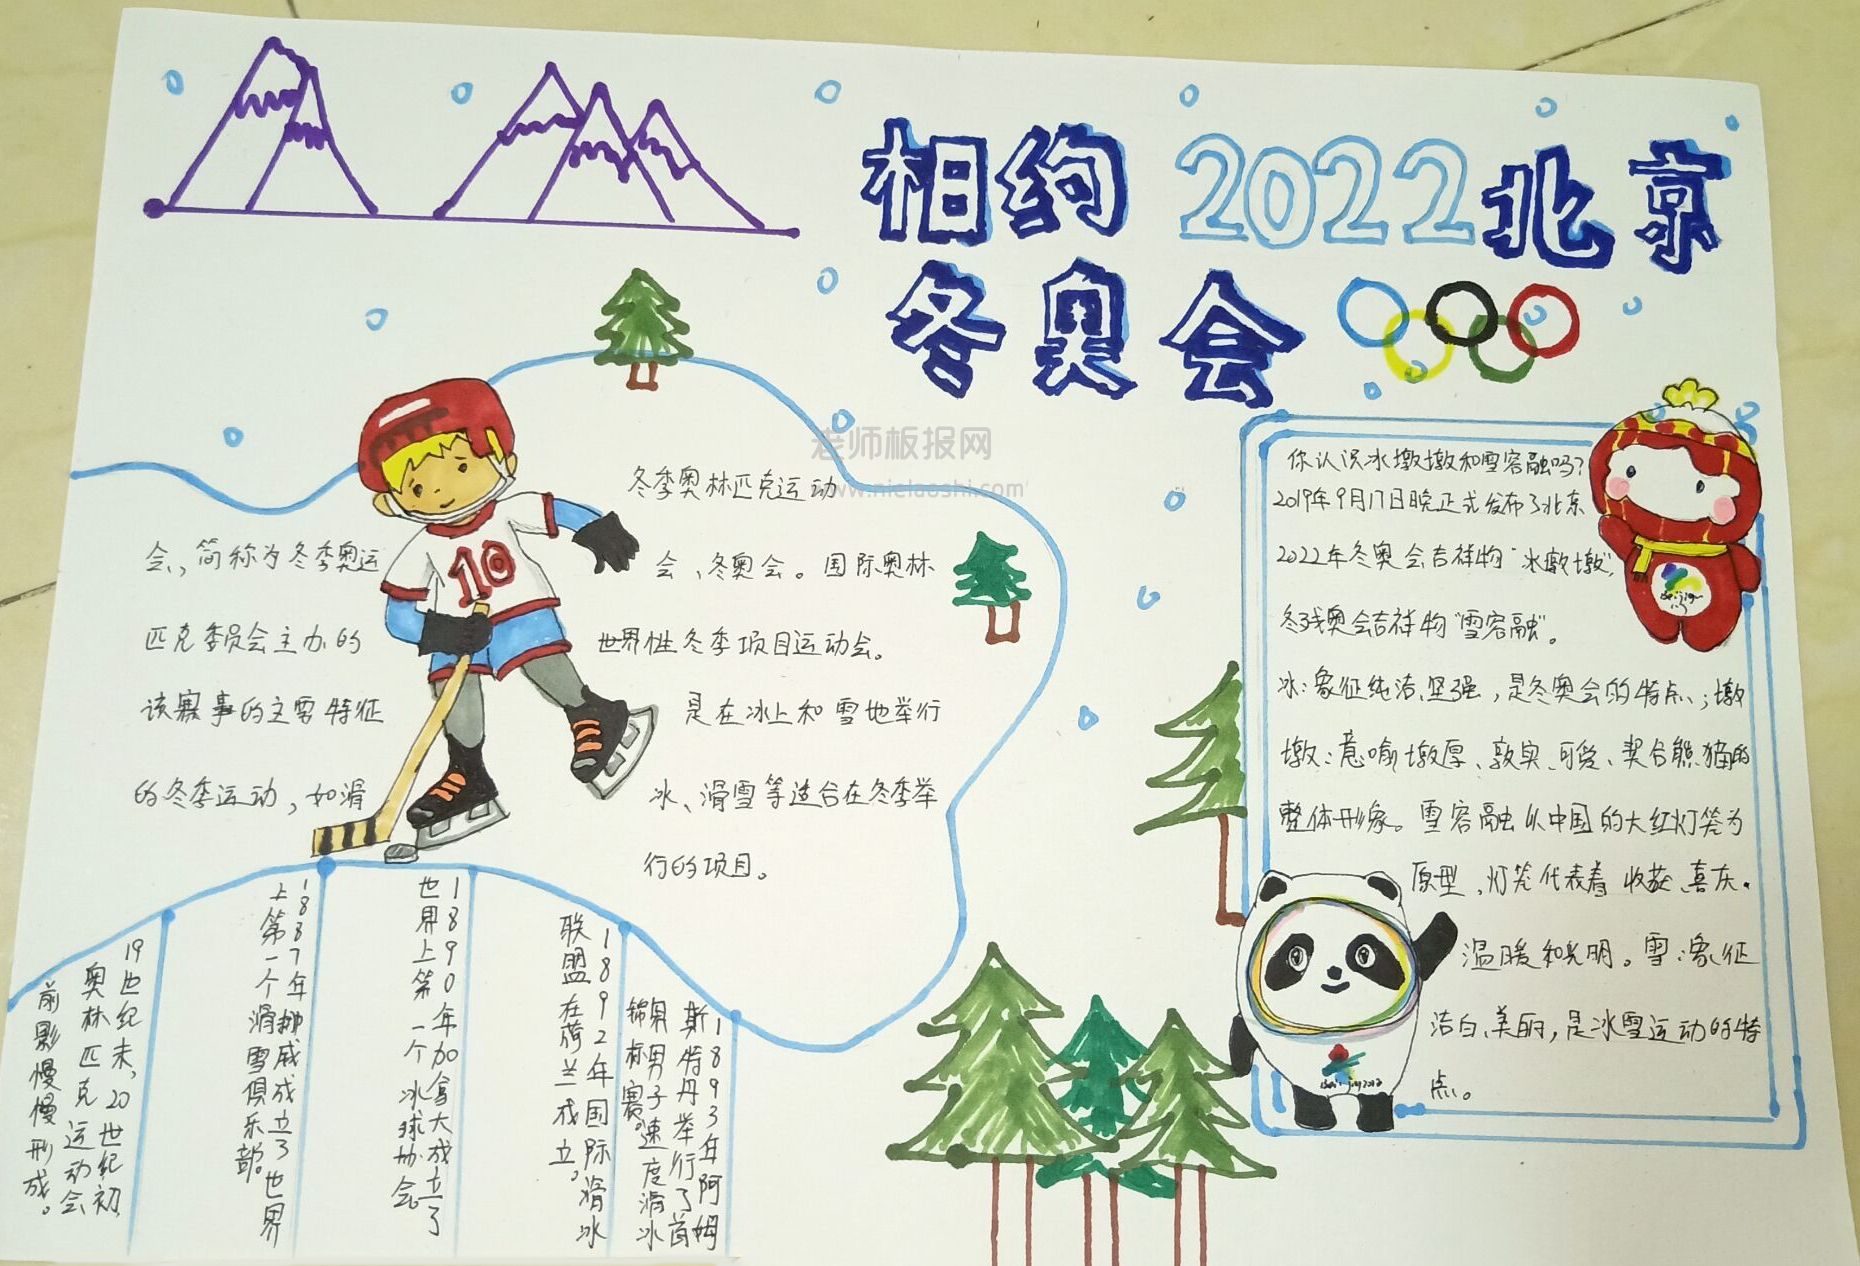 相约2022北京
冬奥会
老师板报网
www.nielaoshi.com
冬季奥林匹克运动
会,简称为冬季奥运会、冬奥会。国际奥林
匹克委员会主办的世界性冬季项目运动会。
该赛事的主要特征是在冰上和雪地举行
的冬季运动,如滑冰、滑雪等适合在冬季举
行的项目。
10
你认识冰墩墩和雪容融吗?
2019年9月17日晚正式发布了北京
2022年冬奥会吉祥物"冰墩墩",
冬残奥会吉祥物"雪容融"。
冰:象征纯洁、坚强,是冬奥会的特点;墩
墩:意喻墩厚、敦实、可爱、契合熊猫的
整体形象。雪容融以中国的大红灯笼为
原型、灯笼代表着收获、喜庆、
温暖和光明。雪:象征
洁白、美丽,是冰雪运动的特
点。
Beijing2022
19世纪末,20世纪初,
奥林匹克运动会
前影慢慢形成。
1887年挪威成立了世界
上第一个滑雪俱乐部。
1890年加拿大成立了
世界上第一个冰球协会。
1892年国际滑冰
联盟在荷兰成立。
1893年阿姆
斯特丹举行了首
届男子速度滑冰
锦标赛。